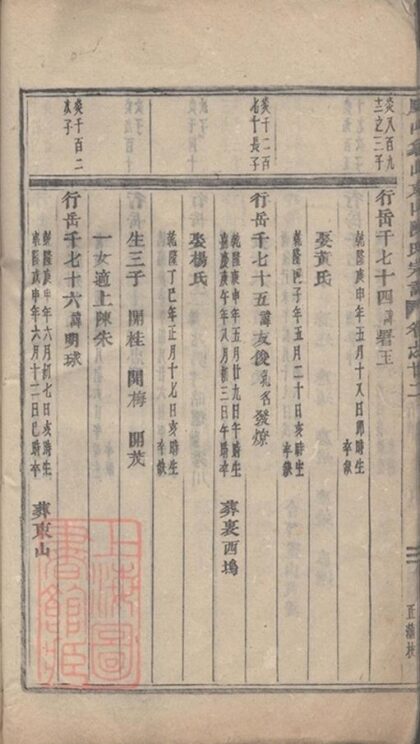 炎八百九
十二之三子
行岳千七十四諱署玉
乾隆庚申年五月十八日卯時生
卒缺
娶黃氏
乾隆甲子年五月二十日亥時生
卒缺
炎千二百
七十長子
行岳千七十五諱友俊乳名發燎
乾隆庚申年五月廿九日午時生
嘉慶庚午年八月初三日午時卒
葬裏西塢
娶楊氏
乾隆丁巳年正月十七日亥時生
卒缺
生三子 開桂 開梅 開茂
一女適上陳朱
炎千百二
次子
行岳千七十六諱明球
乾隆庚申年六月初七日亥時生
乾隆戊申年六月十二日巳時卒
葬東山
上海圖
書館姬